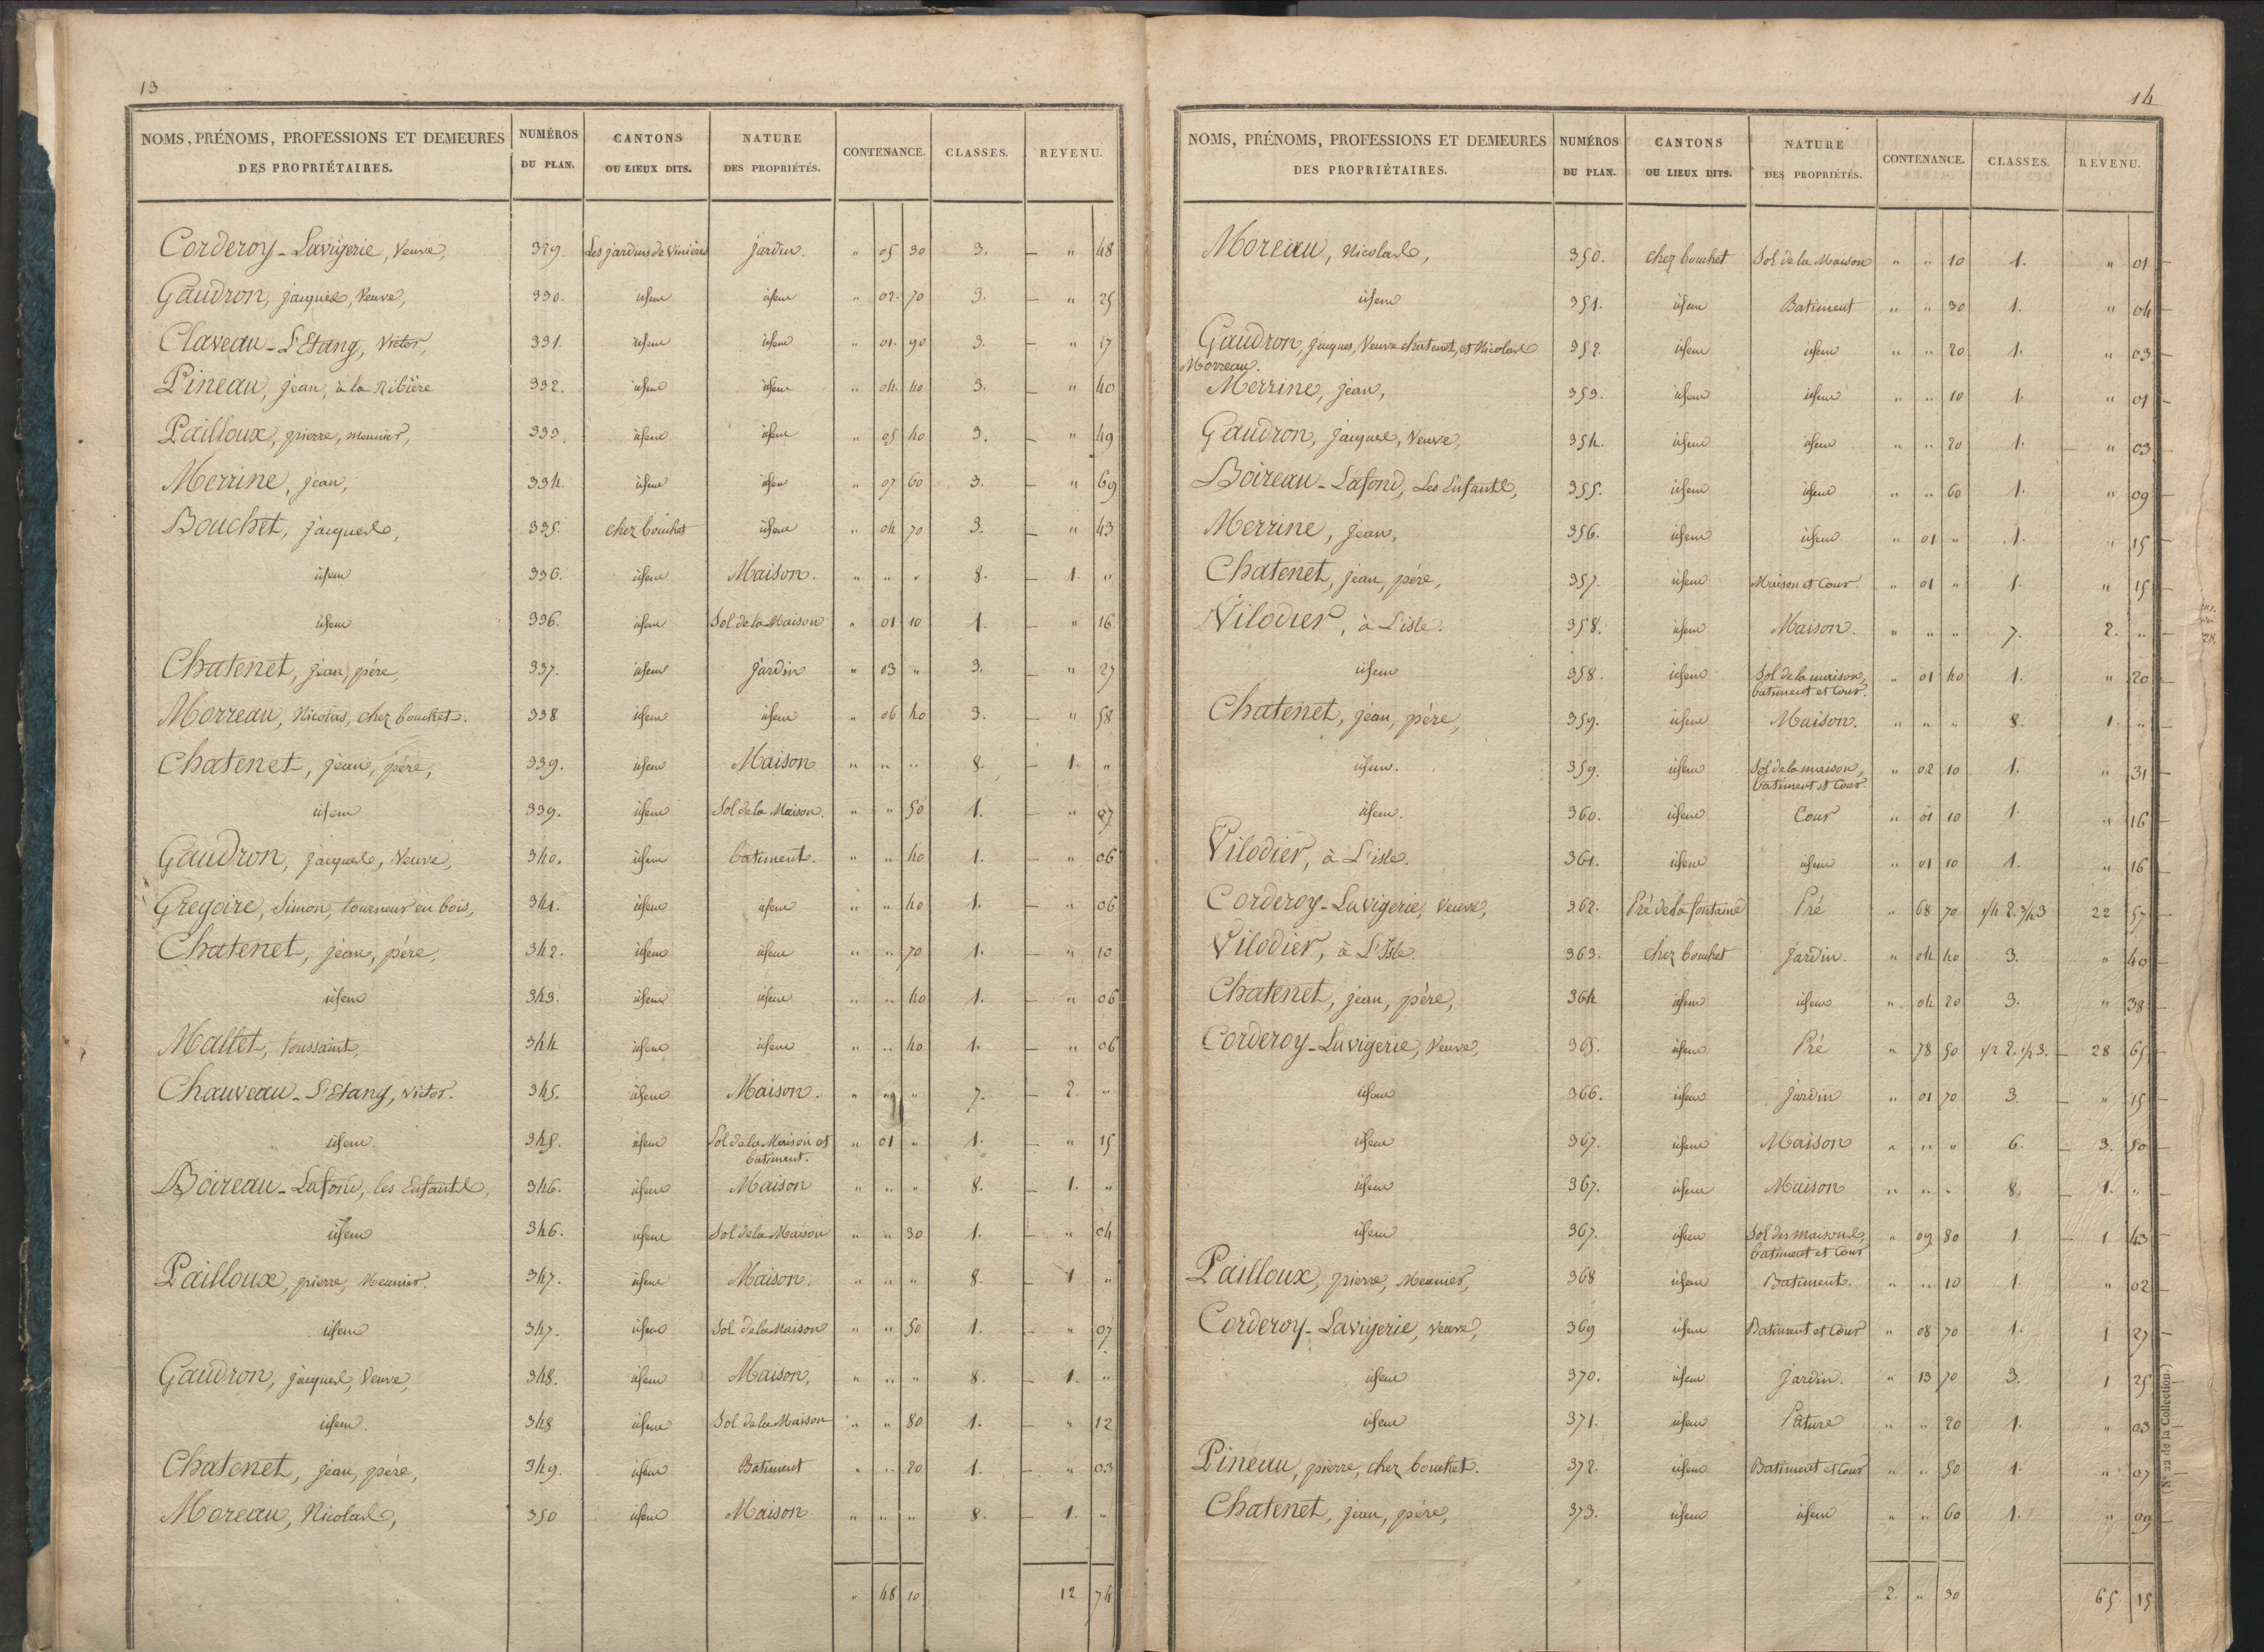 13
NOMS, PRÉNOMS, PROFESSIONS ET DEMEURES DES PROPRIÉTAIRES. NUMÉROS DU PLAN. CANTONS OU LIEUX DITS. NATURE DES PROPRIÉTÉS. CONTENANCE. CLASSES. REVENU.
Corderoy-Lavigerie, Veuve, 329. Les jardins de Vinière jardin. " 05 30 3. " 48
Gaudron, jacques, Veuve, 330. idem idem " 02 70 3. " 25
Claveau-L'Etang, Victor, 331. idem idem " 01 90 3. " 17
Pineau, jean, à la Ribière 332. idem idem " 04 40 3. " 40
Pailloux, pierre, meunier, 333. idem idem " 05 40 3. " 49
Merrine, jean, 334. idem idem " 07 60 3. " 69
Bouchet, jacques, 335. chez bouchet idem " 04 70 3. " 43
idem 336. idem Maison. " " " 8. 1. "
idem 336. idem Sol de la Maison " 01 10 1. " 16
Chatenet, jean, père, 337. idem jardin " 03 " 3. " 27
Morreau, Nicolas, chez bouchet. 338 idem idem " 06 40 3. " 58
Chatenet, jean, père, 339. idem Maison " " " 8. 1. "
idem 339. idem Sol de la Maison. " " 50 1. " 07
Gaudron, jacques, Veuve, 340. idem batiment. " " 40 1. " 06
Gregoire, Simon, tourneur en bois, 341. idem idem " " 40 1. " 06
Chatenet, jean, père, 342. idem idem " " 70 1. " 10
idem 343. idem idem " " 40 1. " 06
Mallet, toussaint, 344 idem idem " " 40 1. " 06
Chauveau-L'Etang, victor. 345. idem Maison. " " " 7. 2. "
idem. 345. idem Sol de la Maison et batiment. " 01 " 1. " 15
Boireau-Lafond, les Enfants, 346. idem Maison " " " 8. 1. "
idem 346. idem Sol de la Maison " " 30 1. " 04
Pailloux, pierre, Meunier. 347. idem Maison. " " " 8. 1 "
idem 347. idem Sol de la Maison " " 50 1. " 07
Gaudron, jacques, Veuve, 348. idem Maison, " " " 8. 1. "
idem. 348 idem Sol de la Maison " " 80 1. " 12
Chatenet, jean, père, 349. idem Batiment " " 20 1. " 03
Moreau, Nicolas, 350 idem Maison " " " 8. 1. "
" 48 10 12 74
14
NOMS, PRÉNOMS, PROFESSIONS ET DEMEURES DES PROPRIÉTAIRES. NUMÉROS DU PLAN. CANTONS OU LIEUX DITS. NATURE DES PROPRIÉTÉS. CONTENANCE. CLASSES. REVENU.
Moreau, Nicolas, 350. chez bouchet Sol de la Maison " " 10 1. " 01
idem 351. idem Batiment " " 30 1. " 04
Gaudron, jacques, Veuve chatenet, et Nicolas Morreau. 352. idem idem " " 20 1. " 03
Merrine, jean, 353. idem idem " " 10 1. " 01
Gaudron, jacques, Veuve, 354. idem idem " " 20 1. " 03
Boireau-Lafond, Les Enfants, 355. idem idem " " 60 1. " 09
Merrine, jean, 356. idem idem " 01 " 1. " 15
Chatenet, jean, père, 357. idem Maison et Cour. " 01 " 1. " 15
Vilodier, à L'isle. 358. idem Maison. " " " 7. 2. "
idem 358. idem Sol de la maison, batiment et Cour. " 01 40 1. " 20
Chatenet, jean, père, 359. idem Maison. " " " 8. 1. "
idem. 359. idem Sol de la maison, batiment et Cour. " 02 10 1. " 31
idem. 360. idem Cour " 01 10 1. " 16
Vilodier, à L'isle. 361. idem idem " 01 10 1. " 16
Corderoy-Lavigerie, Veuve, 362. Pré de la fontaine Pré " 68 70 1/4 2. 3/4 3 22 57
Vilodier, à L'Isle. 363. chez bouchet jardin. " 04 40 3. " 40
Chatenet, jean, père, 364 idem idem " 04 20 3. " 38
Corderoy-Lavigerie, Veuve, 365. idem Pré " 78 50 1/2 2. 1/2 3. 28 65
idem 366. idem jardin " 01 70 3. " 15
idem 367. idem Maison " " " 6. 3. 50
idem 367. idem Maison " " " 8. 1. "
idem 367. idem Sol des maisons, batiment et Cour " 09 80 1. 1 43
Pailloux, pierre, Meunier, 368 idem Batiment. " " 10 1. " 02
Corderoy-Lavigerie, veuve, 369 idem Batiment et Cour " 08 70 1. 1 27
idem 370. idem jardin. " 13 70 3. 1 25
idem 371. idem Pature " " 20 1. " 03
Pineau, pierre, chez bouchet. 372. idem Batiment et Cour " " 50 1. " 07
Chatenet, jean, père, 373. idem idem " " 60 1. " 09
2. " 30 65 15
(N° 22 de la Collection.)